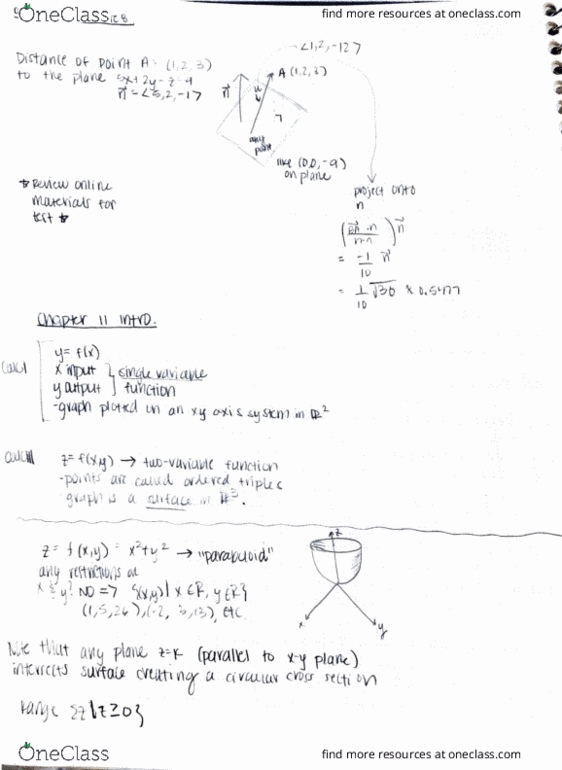 OneClass
find more resources at oneclass.com
Distance of point A: (1,2,3)
to the plane 5x+2y-z=9
n = <5,2,-1>
<1,2,-12>
A (1,2,3)
n
any
plane
like (0,0,-9)
on plane
* Review online
materials for
test *
project onto
n
= -1/10 n
= 1/10 √30 ≈ 0.5477
Chapter 11 intro.
calc I
y = f(x)
x input } single variable
y output } function
-graph plotted in an xy axis system in R²
calc III
z = f(x,y) → two-variable function
-points are called ordered triples
graph is a surface in R³.
z = f(x,y) = x²+y² → "paraboloid"
any restrictions on
x & y? NO => {(x,y) | x ∈ R, y ∈ R}
(1,5,26), (-2, 3, 13), etc.
z
x
y
Note that any plane z=k (parallel to x-y plane)
intersects surface creating a circular cross section
range {z | z ≥ 0}
OneClass
find more resources at oneclass.com